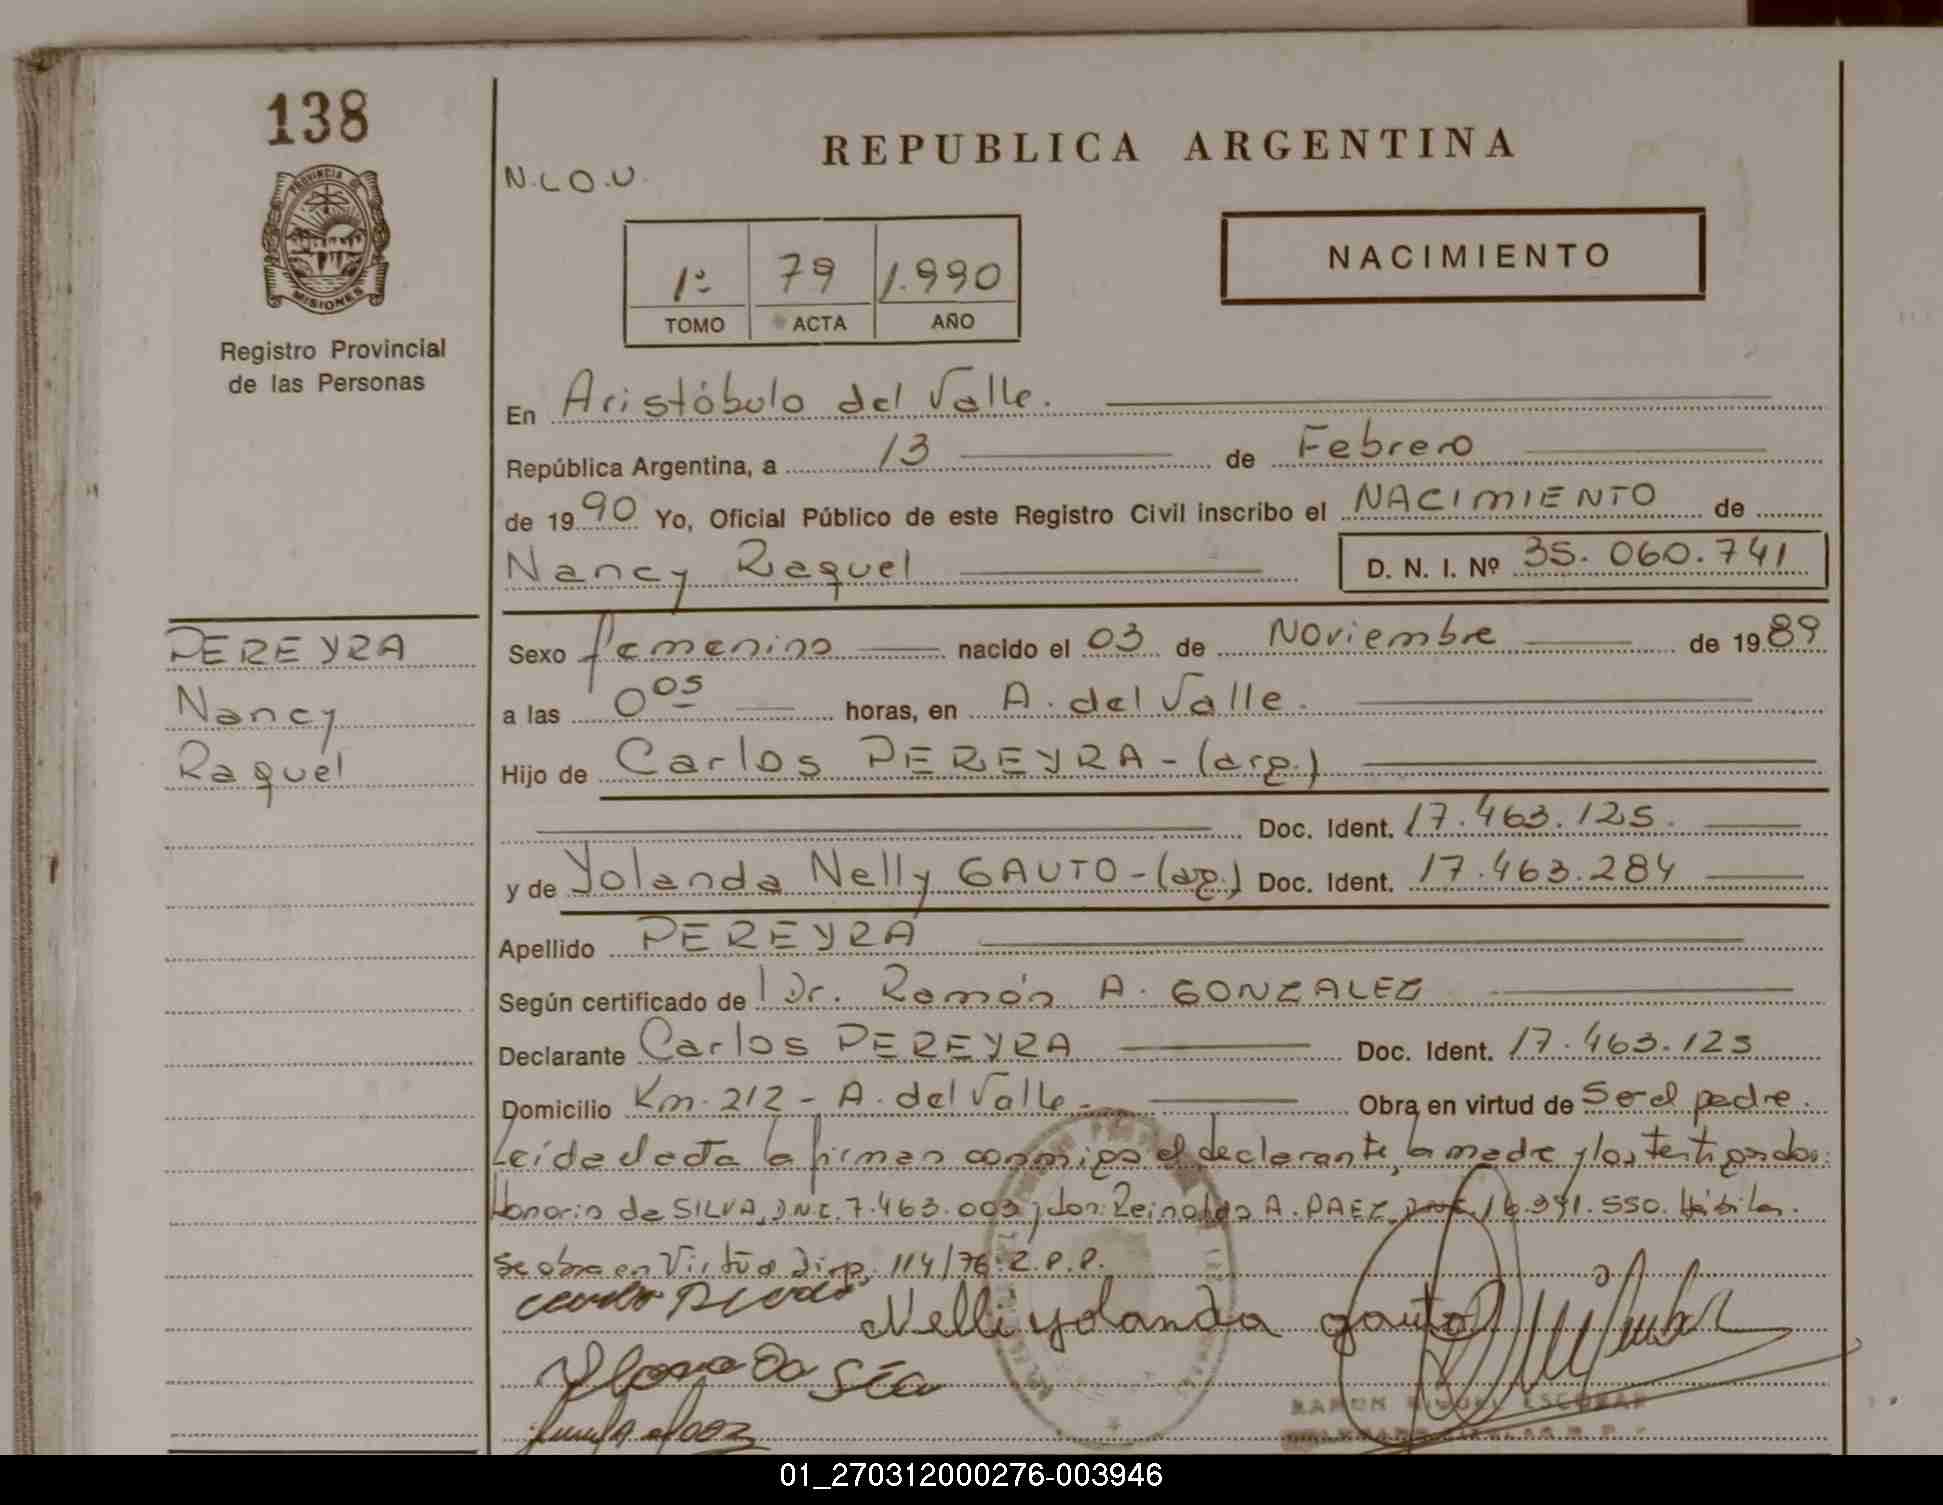 138
PROVINCIA DE
MISIONES
Registro Provincial
de las Personas
PEREYRA
Nancy
Raquel
REPUBLICA ARGENTINA
N.L.O.U.
1º 79 1.990
TOMO ACTA AÑO
NACIMIENTO
En Aristóbulo del Valle.
República Argentina, a 13 de Febrero
de 1990 Yo, Oficial Público de este Registro Civil inscribo el NACIMIENTO de
Nancy Raquel D. N. I. Nº 35.060.741
Sexo femenino nacido el 03 de Noviembre de 1989
a las 0 05 horas, en A. del Valle.
Hijo de Carlos PEREYRA - (arg.)
Doc. Ident. 17.463.125.
y de Yolanda Nelly GAUTO - (arg.) Doc. Ident. 17.463.284
Apellido PEREYRA
Según certificado de Dr. Ramón A. GONZALEZ
Declarante Carlos PEREYRA Doc. Ident. 17.463.125
Domicilio Km. 212 - A. del Valle. Obra en virtud de Ser el padre.
Leída el acta la firman conmigo el declarante, la madre y los testigos don:
Honorio da SILVA, D.N.I. 7.463.003 y don: Reinaldo A. PAEZ, D.N.I. 16.391.550. Hábiles.
Se obra en Virtud Disp. 114/76 R.P.P.
Nelli yolanda gauto
RAMON MIGUEL ESCOBAR
01_270312000276-003946